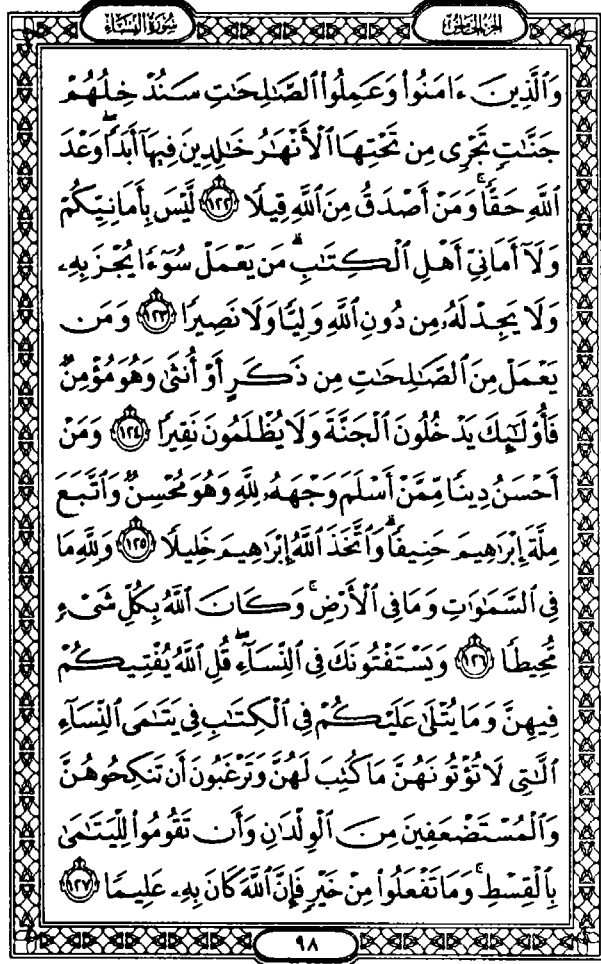 سُورَةُ النِّسَاءِ
الجُزْءُ الخَامِسُ
وَٱلَّذِينَ ءَامَنُوا۟ وَعَمِلُوا۟ ٱلصَّـٰلِحَـٰتِ سَنُدْخِلُهُمْ
جَنَّـٰتٍ تَجْرِى مِن تَحْتِهَا ٱلْأَنْهَـٰرُ خَـٰلِدِينَ فِيهَآ أَبَدًا ۖ وَعْدَ
ٱللَّهِ حَقًّا ۚ وَمَنْ أَصْدَقُ مِنَ ٱللَّهِ قِيلًا ١٢٢ لَّيْسَ بِأَمَانِيِّكُمْ
وَلَآ أَمَانِىِّ أَهْلِ ٱلْكِتَـٰبِ ۗ مَن يَعْمَلْ سُوٓءًا يُجْزَ بِهِۦ
وَلَا يَجِدْ لَهُۥ مِن دُونِ ٱللَّهِ وَلِيًّا وَلَا نَصِيرًا ١٢٣ وَمَن
يَعْمَلْ مِنَ ٱلصَّـٰلِحَـٰتِ مِن ذَكَرٍ أَوْ أُنثَىٰ وَهُوَ مُؤْمِنٌ
فَأُو۟لَـٰٓئِكَ يَدْخُلُونَ ٱلْجَنَّةَ وَلَا يُظْلَمُونَ نَقِيرًا ١٢٤ وَمَنْ
أَحْسَنُ دِينًا مِّمَّنْ أَسْلَمَ وَجْهَهُۥ لِلَّهِ وَهُوَ مُحْسِنٌ وَٱتَّبَعَ
مِلَّةَ إِبْرَٰهِيمَ حَنِيفًا ۗ وَٱتَّخَذَ ٱللَّهُ إِبْرَٰهِيمَ خَلِيلًا ١٢٥ وَلِلَّهِ مَا
فِى ٱلسَّمَـٰوَٰتِ وَمَا فِى ٱلْأَرْضِ ۚ وَكَانَ ٱللَّهُ بِكُلِّ شَىْءٍ
مُّحِيطًا ١٢٦ وَيَسْتَفْتُونَكَ فِى ٱلنِّسَآءِ ۖ قُلِ ٱللَّهُ يُفْتِيكُمْ
فِيهِنَّ وَمَا يُتْلَىٰ عَلَيْكُمْ فِى ٱلْكِتَـٰبِ فِى يَتَـٰمَى ٱلنِّسَآءِ
ٱلَّـٰتِى لَا تُؤْتُونَهُنَّ مَا كُتِبَ لَهُنَّ وَتَرْغَبُونَ أَن تَنكِحُوهُنَّ
وَٱلْمُسْتَضْعَفِينَ مِنَ ٱلْوِلْدَٰنِ وَأَن تَقُومُوا۟ لِلْيَتَـٰمَىٰ
بِٱلْقِسْطِ ۚ وَمَا تَفْعَلُوا۟ مِنْ خَيْرٍ فَإِنَّ ٱللَّهَ كَانَ بِهِۦ عَلِيمًا ١٢٧
٩٨